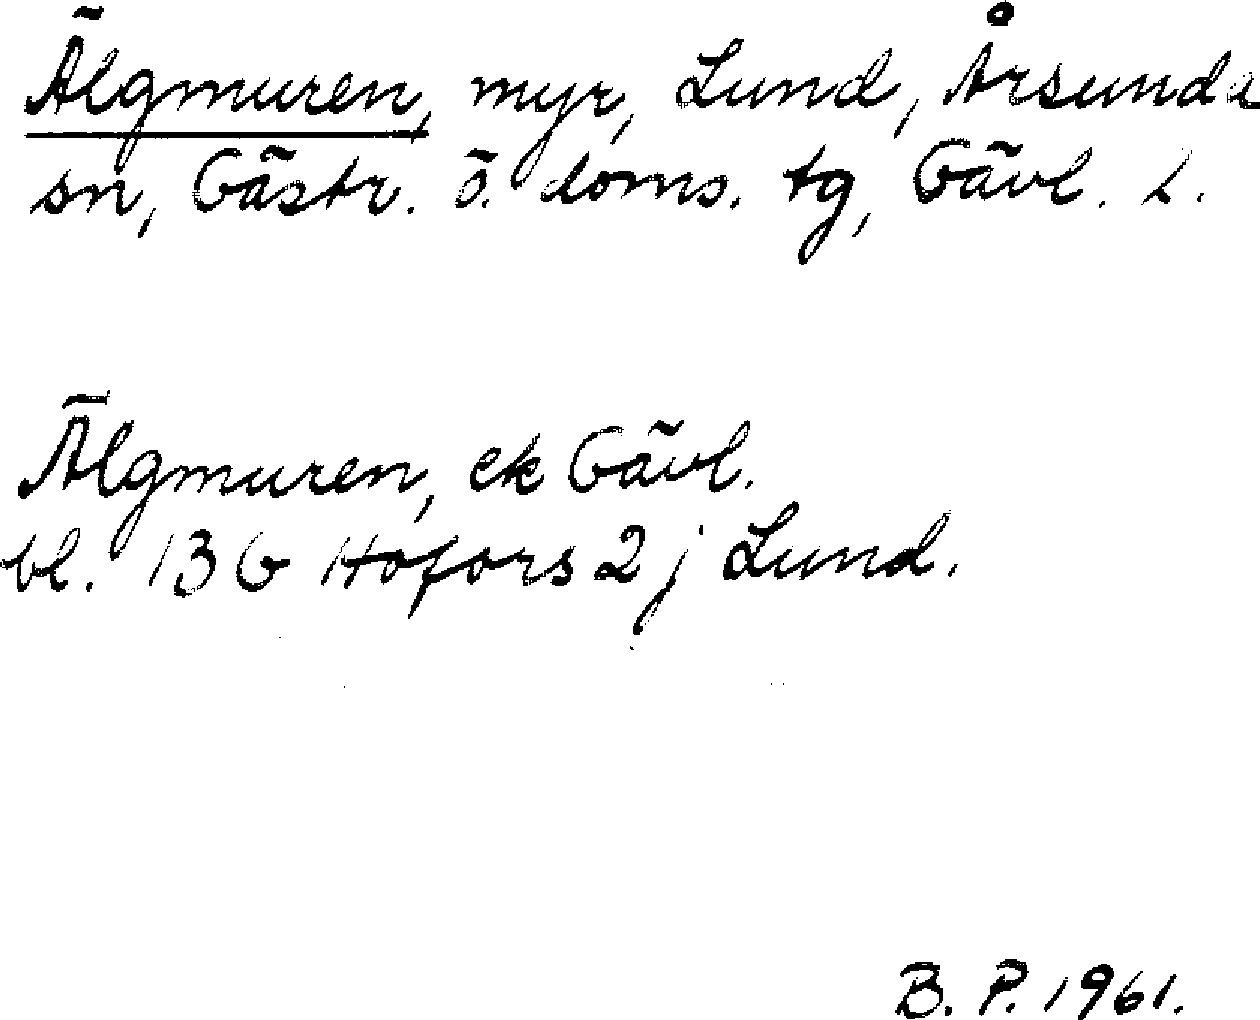 Älgmuren, myr, Lund, Årsunda
sn, Gästr. ö. doms. tg, Gävl. L.
Älgmuren, ek Gävl.
bl. 13 G Hofors 2 j Lund.
B. P. 1961.